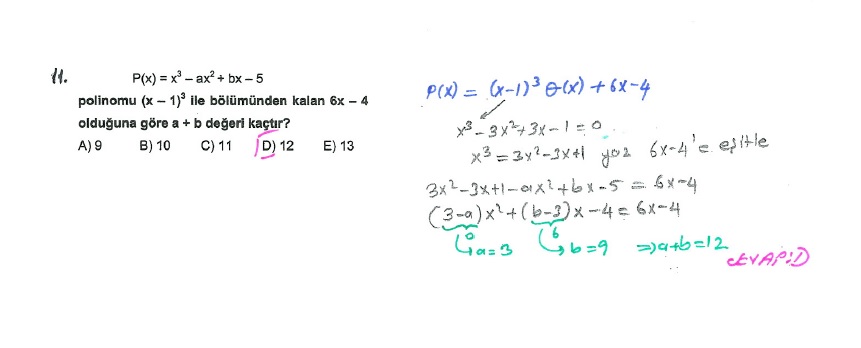 11.
P(x) = x³ – ax² + bx – 5
polinomu (x – 1)³ ile bölümünden kalan 6x – 4
olduğuna göre a + b değeri kaçtır?
A) 9 B) 10 C) 11 D) 12 E) 13
P(x) = (x-1)³ Q(x) + 6x-4
x³-3x²+3x-1=0
x³=3x²-3x+1 yaz 6x-4'e eşitle
3x²-3x+1-ax²+bx-5 = 6x-4
(3-a)x²+(b-3)x-4=6x-4
0 6
a=3 b=9 ⇒a+b=12
CEVAP:D